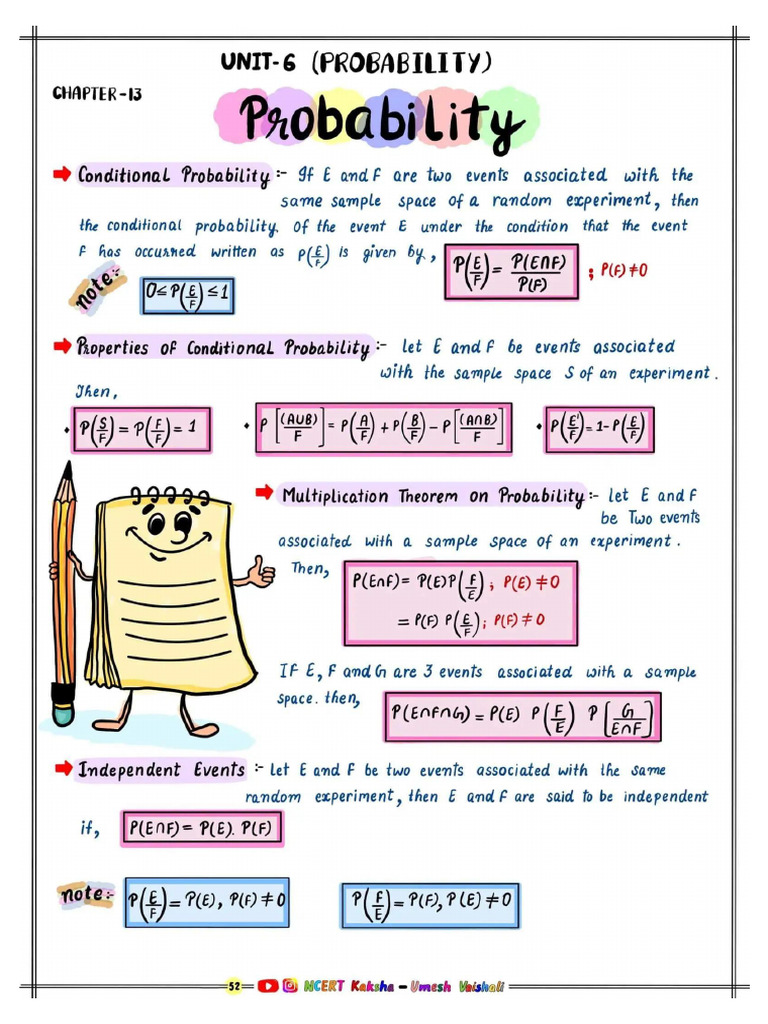 UNIT-6 (PROBABILITY)
CHAPTER-13
Probability
➡ Conditional Probability :- If E and F are two events associated with the
same sample space of a random experiment, then
the conditional probability. Of the event E under the condition that the event
F has occurred written as P(E/F) is given by, P(E/F) = P(E∩F)/P(F) ; P(F)≠0
note:- 0≤P(E/F)≤1
➡ Properties of Conditional Probability :- let E and F be events associated
with the sample space S of an experiment.
Then,
• P(S/F) = P(F/F) = 1 • P[(A∪B)/F] = P(A/F) + P(B/F) - P[(A∩B)/F] • P(E'/F) = 1-P(E/F)
➡ Multiplication Theorem on Probability :- let E and F
be Two events
associated with a sample space of an experiment.
Then, P(E∩F) = P(E)P(F/E) ; P(E) ≠0
= P(F) P(E/F) ; P(F) ≠ 0
If E, F and G are 3 events associated with a sample
space. then, P(E∩F∩G) = P(E) P(F/E) P[G/E∩F]
➡ Independent Events :- let E and F be two events associated with the same
random experiment, then E and F are said to be independent
if, P(E∩F) = P(E). P(F)
note:- P(E/F) = P(E), P(F) ≠0 P(F/E) = P(F), P(E) ≠0
52 NCERT Kaksha – Umesh Vaishali